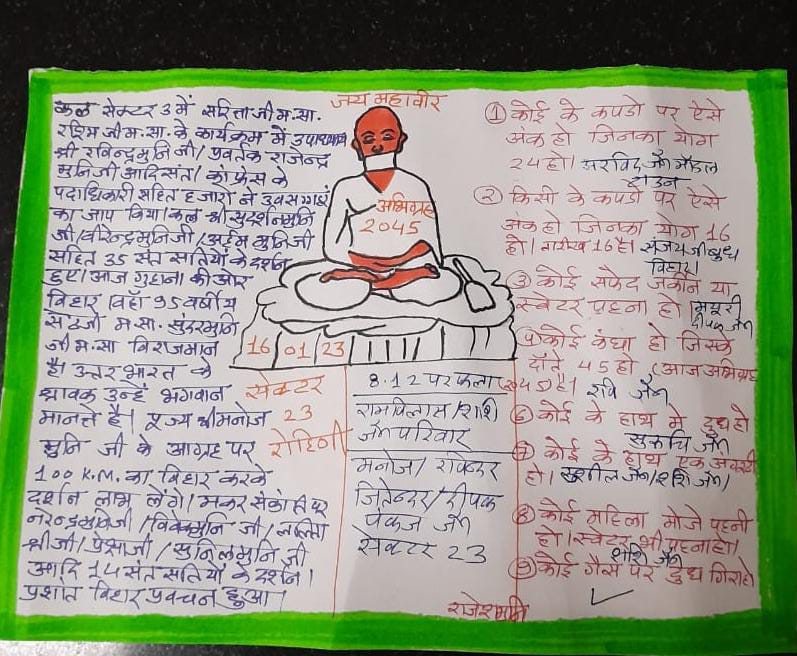 जय महावीर
कल सेक्टर 3 में सरिताजी म.सा.
रश्मि जी म.सा. के कार्यक्रम में उपाध्याय
श्री रविन्द्रमुनि जी/ प्रवर्तक राजेन्द्र
मुनिजी आदि संत/ कांफ्रेंस के
पदाधिकारी सहित हजारों ने उवसग्गहरं
का जाप किया। कल श्री सुदर्शनमुनि
जी/वीरेन्द्रमुनिजी/
सहित 35 संत सतियों के दर्शन
हुए। आज गुहाना की ओर
विहार। वहाँ 95 वर्षीय
सेठजी म.सा. सुंदरमुनि
जी म.सा विराजमान
है। उत्तर भारत के
श्रावक उन्हें भगवान
मानते है। पूज्य श्री मनोज
मुनि जी के आग्रह पर
100 K.M. का विहार करके
दर्शन लाभ लेंगे। मकर संक्रांति पर
नरेन्द्रमुनिजी/विवेकमुनि जी/ललिता
श्रीजी/प्रेक्षाजी/सुनिलमुनि जी
आदि 14 संत सतियों के दर्शन।
प्रशांत विहार प्रवचन हुआ।
अभिग्रह
2045
16 01 23
सेक्टर
23
रोहिणी
8.12 पर फला
रामविलास/शशि
जैन परिवार
मनोज/रविन्दर
जितेन्दर/दीपक
पंकज जैन
सेक्टर 23
राजेशमुनि
① कोई के कपडो पर ऐसे
अंक हो जिनका योग
24 हो। अरविंद जैन मॉडल
टाउन
② किसी के कपडो पर ऐसे
अंक हो जिनका योग 16
हो। तारीख 16 है। संजय जी बुध
विहार।
③ कोई सफेद जर्कीन या
स्वेटर पहना हो। मयूरी
दीपक जैन
④ कोई कंघा हो जिसके
दाँते 45 हो (आज अभिग्रह
2045 है। रवि जैन
⑥ कोई के हाथ मे दुध हो
सुरुचि जैन
⑦ कोई के हाथ एक
हो। सुशील जैन/शशि जैन/
⑧ कोई महिला मोजे पहनी
हो। स्वेटर भी पहना हो।
शशि जैन
⑨ कोई गैस पर दुध गिरा हो